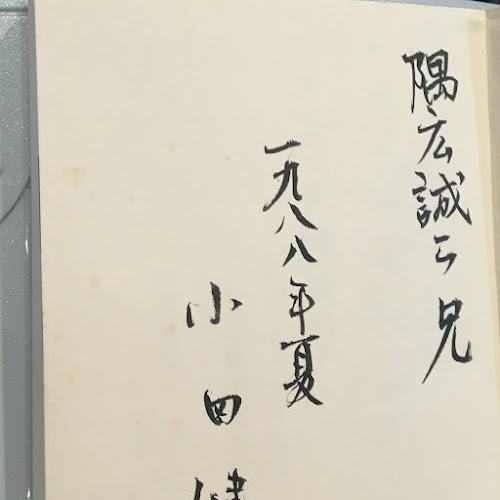 隅広誠二兄
一九八八年夏
小田